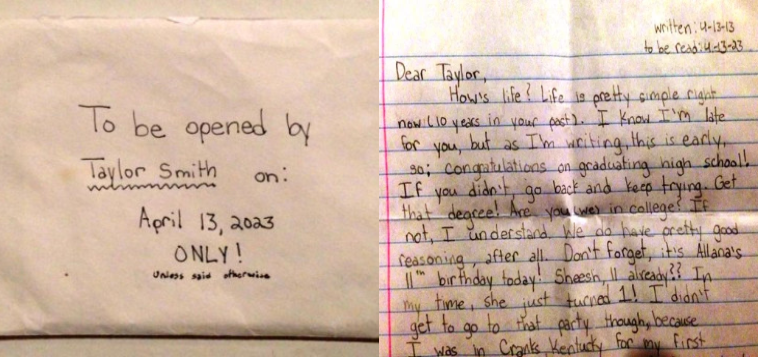 To be opened by
Taylor Smith on:
April 13, 2023
ONLY!
unless said otherwise
written: 4-13-13
to be read: 4-13-23
Dear Taylor,
How's life? Life is pretty simple right
now (10 years in your past). I know I'm late
for you, but as I'm writing, this is early,
so; congratulations on graduating high school!
If you didn't, go back and keep trying. Get
that degree! Are you (we) in college? If
not, I understand. We do have pretty good
reasoning, after all. Don't forget, it's Allana's
11th birthday today! Sheesh, 11 already?? In
my time, she just turned 1! I didn't
get to go to that party though, because
I was in Cranks Kentucky for my first